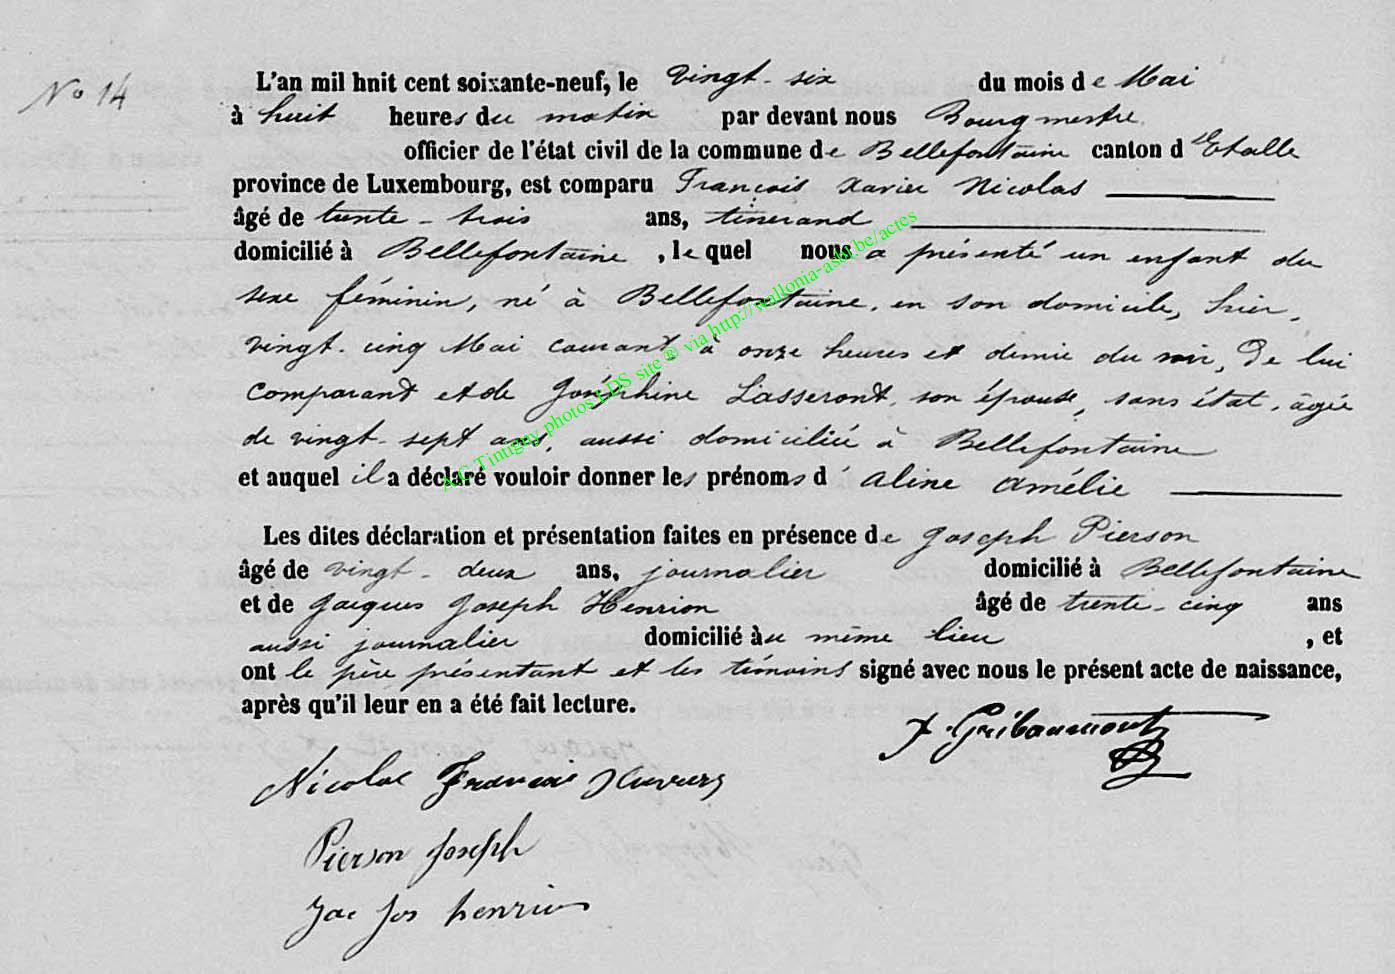 No 14
L'an mil huit cent soixante-neuf, le vingt-six du mois de Mai
à huit heures du matin par devant nous Bourgmestre
officier de l'état civil de la commune de Bellefontaine canton d'Etalle
province de Luxembourg, est comparu François Xavier Nicolas
âgé de trente-trois ans, tisserand
domicilié à Bellefontaine, le quel nous a présenté un enfant du
sexe féminin, né à Bellefontaine, en son domicile, hier,
vingt-cinq Mai courant, à onze heures et demie du soir, de lui
comparant et de Joséphine Lasseront, son épouse, sans état, âgée
de vingt-sept ans, aussi domiciliée à Bellefontaine
et auquel il a déclaré vouloir donner les prénoms d'Aline Amélie
Les dites déclaration et présentation faites en présence de Joseph Pierson
âgé de vingt-deux ans, journalier domicilié à Bellefontaine
et de Jacques Joseph Henrion âgé de trente-cinq ans
aussi journalier domicilié au même lieu, et
ont le père présentant et les témoins signé avec nous le présent acte de naissance,
après qu'il leur en a été fait lecture.
Gribaumont
Nicolas Francois
Pierson Joseph
Jac Jos henrion
A.C Tintigny photos LDS site ® via http://wallonia-asbl.be/actes